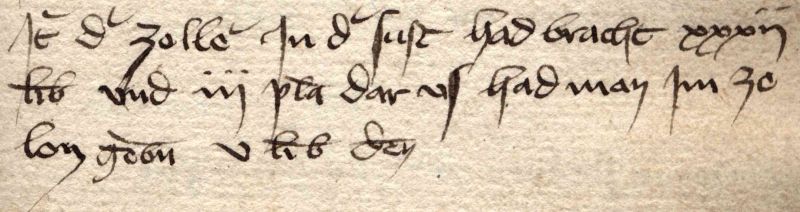 It d' zolle' In d' sust had bracht xxxii
lib vnd iii pla dar vs had man Im ze
lon geбn v lib den